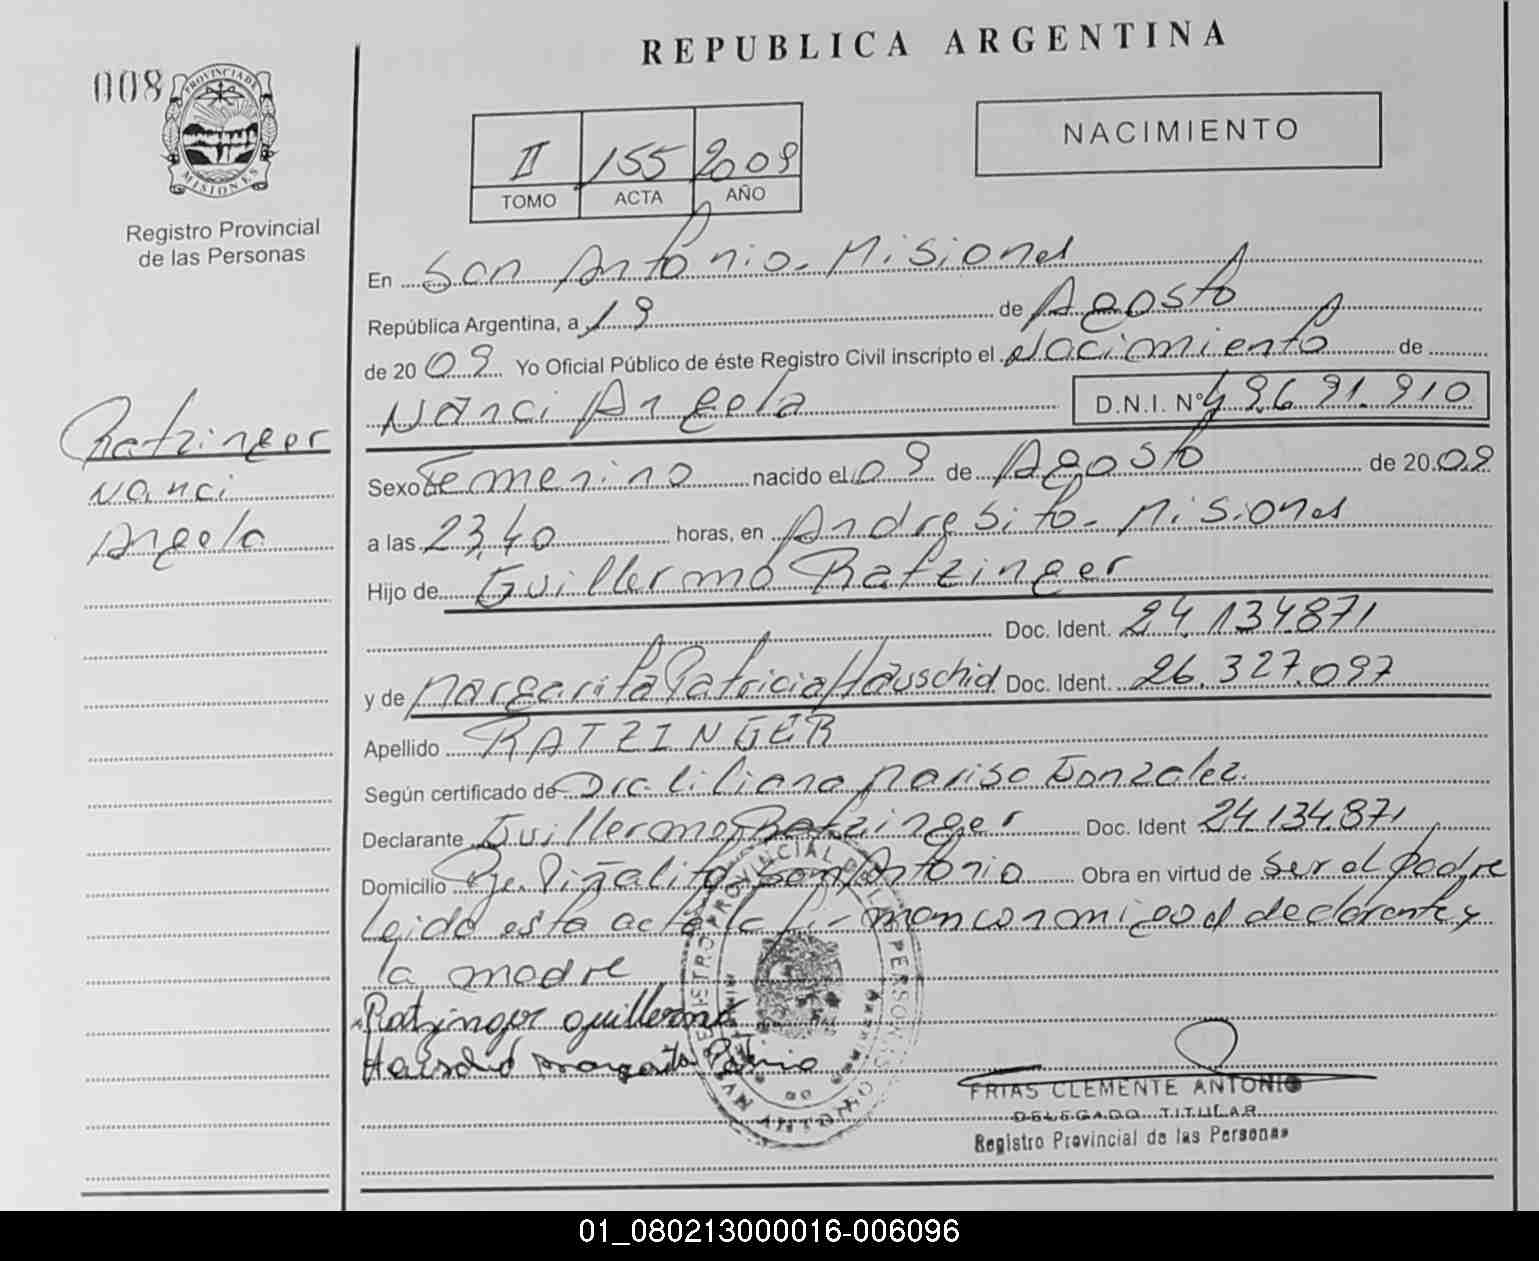 REPUBLICA ARGENTINA
008
PROVINCIA DE
MISIONES
Registro Provincial
de las Personas
II 155 2009
TOMO ACTA AÑO
NACIMIENTO
En San Antonio - Misiones
República Argentina, a 19 de Agosto
de 2009 Yo Oficial Público de éste Registro Civil inscripto el Nacimiento de
Nanci Angela D.N.I. Nº 49.691.910
Ratzinger
Nanci
Angela
Sexo Femenino nacido el 09 de Agosto de 20 09
a las 23,40 horas, en Andresito - Misiones
Hijo de Guillermo Ratzinger
Doc. Ident. 24.134.871
y de Margarita Patricia Hauschid Doc. Ident. 26.327.097
Apellido RATZINGER
Según certificado de Dra. Liliana Marisa Gonzalez.
Declarante Guillermo Ratzinger Doc. Ident 24.134.871
Domicilio Pje. Piñalito San Antonio Obra en virtud de ser el padre
Leida esta acta la fi-man conmigo el declarante y
la madre
Ratzinger Guillermo
Margarita
FRIAS CLEMENTE ANTONIO
DELEGADO TITULAR
Registro Provincial de las Personas
01_080213000016-006096